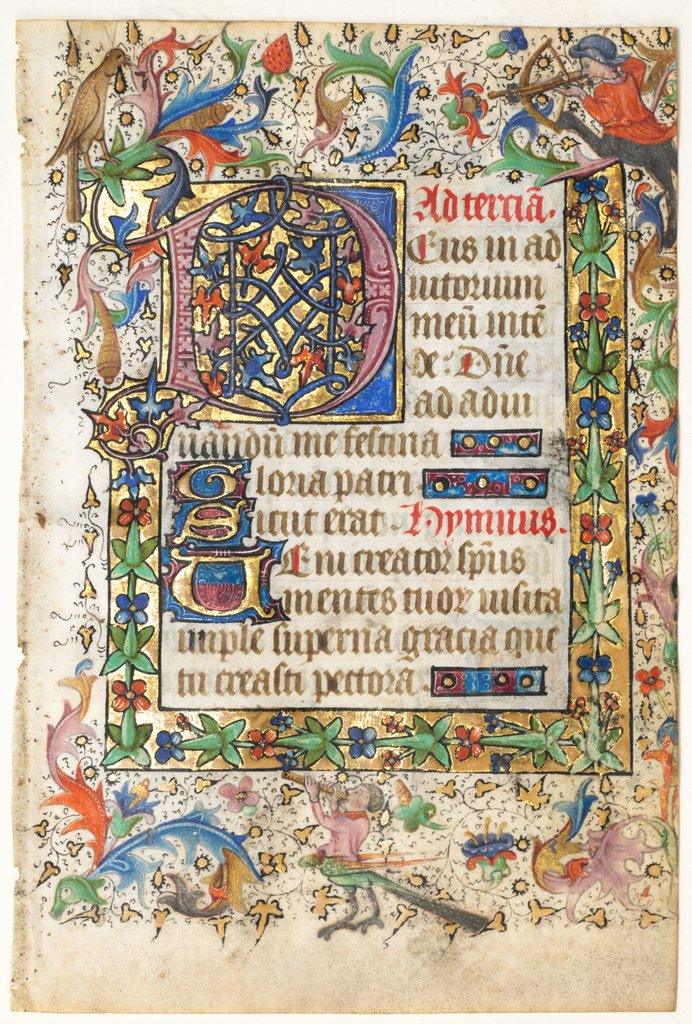 Ad terciā.
Deus in ad
iutorium
meū inte͞
de: Dn̄e
ad adiu
uandū me festina
Gloria patri
Sicut erat Hymnus.
Ueni creator sp̄us
mentes tuoꝝ uisita
imple superna gracia que
tu creasti pectora